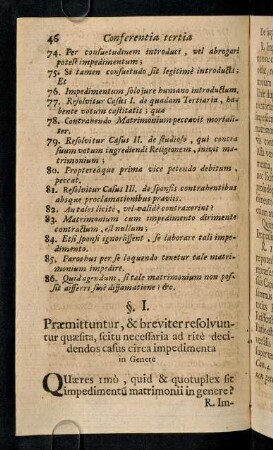 46 Conferentia tertia
74. Per consuetudinem introduci, vel abrogari
potest impedimentum;
75. Si tamen consuetudo sit legitimè introducta;
Et
76. Impedimentum solo jure humano introductum.
77. Resolvitur Casus I. de quadam Tertiaria, ha-
bente votum castitatis: quæ
78. Contrahendo Matrimonium peccavit mortali-
ter.
79. Resolvitur Casus II. de studioso, qui contra
suum votum ingrediendi Religionem, inivit ma-
trimonium;
80. Propterea que prima vice petendo debitum,
peccat.
81. Resolvitur Casus III. de sponsis contrahentibus
absque proclamationibus præviis.
82. An tales licitè, vel validè contraxerint?
83. Matrimonium cum impedimento dirimente
contractum, est nullum;
84. Etsi sponsi ignorassent, se laborare tali impe-
dimento.
85. Parochus per se loquendo tenetur tale matri-
monium impedire.
86. Quid agendum, si tale matrimonium non pos-
sit differri sine diffamatione? &c.
§. I.
Præmittuntur, & breviter resolvun-
tur quæsita, scitu necessaria ad ritè deci-
dendos casus circa impedimenta
in Genere
QUæres 1mò, quid & quotuplex sit
impedimentũ matrimonii in genere?
R. Im-